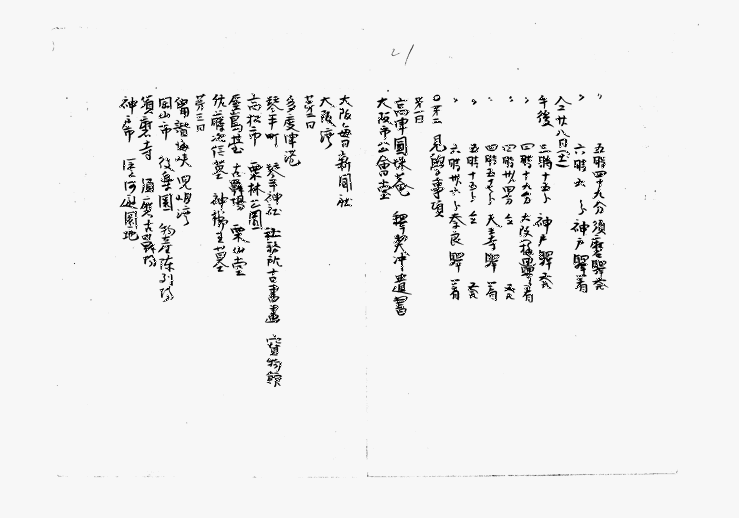 〃 五時四十九分須磨駅発
〃 六時六分神戸駅着
仝廿八日(土)
午後 三時十五分 神戸駅発
〃 四時十九分 大阪 駅着
〃 四時廿四分 仝 発
〃 四時五十 分 天王寺駅着
〃 五時十五分 仝 発
〃 六時廿六分 奈良駅着
見学事項
第一日
高津圓珠菴 釋契冲遺書
大阪市公會堂
大阪毎日新聞社
大阪湾
第二日
多度津港
琴平町 琴平神社 社務所古書畫 宝物館
高松市 栗林公園
屋島 古戰場 栗山堂
佐藤次信墓 神櫛王墓
第三日
児嶋湾
岡山市 後楽園 物産陳列場
須磨寺 須磨古戰場
神戸市 遊園地